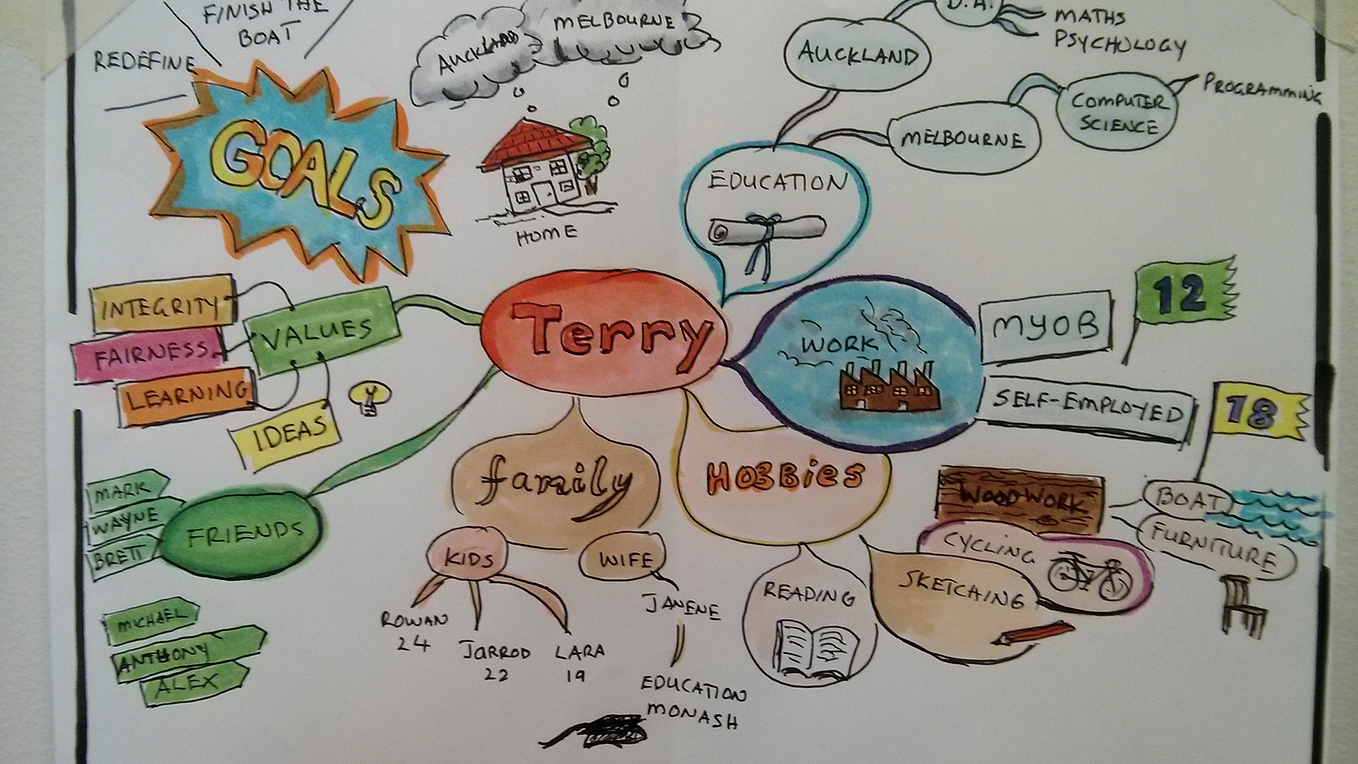 FINISH THE
BOAT
REDEFINE
GOALS
AUCKLAND
MELBOURNE
HOME
B.A.
MATHS
PSYCHOLOGY
AUCKLAND
MELBOURNE
COMPUTER
SCIENCE
PROGRAMMING
EDUCATION
Terry
VALUES
INTEGRITY
FAIRNESS
LEARNING
IDEAS
WORK
MYOB
12
SELF-EMPLOYED
18
FRIENDS
MARK
WAYNE
BRETT
MICHAEL
ANTHONY
ALEX
family
KIDS
ROWAN
24
JARROD
22
LARA
19
WIFE
JANENE
EDUCATION
MONASH
HOBBIES
READING
SKETCHING
CYCLING
WOODWORK
BOAT
FURNITURE